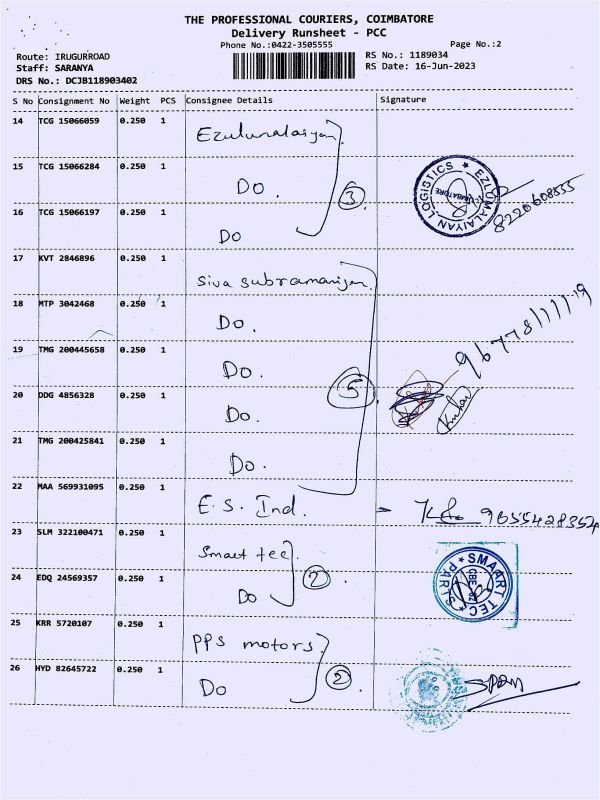 THE PROFESSIONAL COURIERS, COIMBATORE
Delivery Runsheet - PCC
Phone No.:0422-3505555 Page No.:2
Route: IRUGURROAD RS No.: 1189034
Staff: SARANYA RS Date: 16-Jun-2023
DRS No.: DCJB118903402
S No Consignment No Weight PCS Consignee Details Signature
14 TCG 15066059 0.250 1 Ezulumalaiyan
15 TCG 15066284 0.250 1 Do. 3 EZLUMALAIYAN LOGISTICS COIMBATORE 8220608555
16 TCG 15066197 0.250 1 Do
17 KVT 2846896 0.250 1 Siva subramaniyan
18 MTP 3042468 0.250 1 Do.
19 TMG 200445658 0.250 1 Do.
20 DDG 4856328 0.250 1 Do. 5
21 TMG 200425841 0.250 1 Do.
22 MAA 569931095 0.250 1 E.S. Ind. - 9655428352
23 SLM 322100471 0.250 1 Smart tec
24 EDQ 24569357 0.250 1 Do 2 SMAART TEC PARTS CBE
25 KRR 5720107 0.250 1 PPS motors
26 HYD 82645722 0.250 1 Do 2